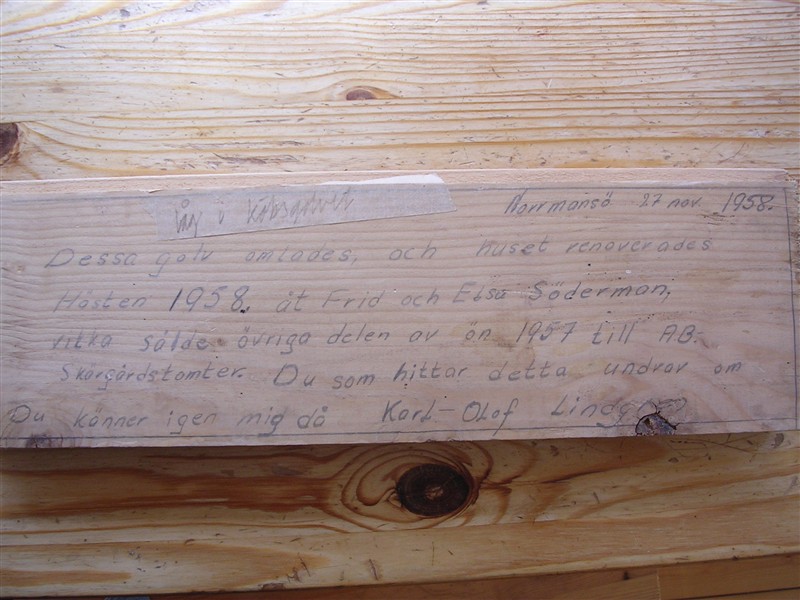 låg i köksgolvet
Norrmansö 27 nov. 1958.
Dessa golv omlades, och huset renoverades
Hösten 1958. åt Frid och Elsa Söderman,
vilka sålde övriga delen av ön 1957 till AB.
Skärgårdstomter. Du som hittar detta undrar om
Du känner igen mig då Karl-Olof